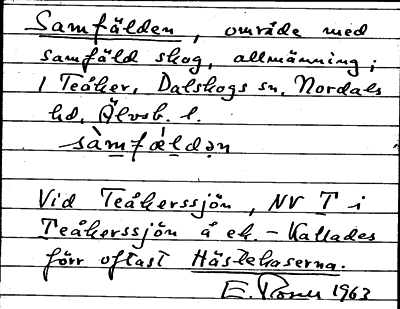 Samfälden, område med
samfäld skog, allmänning;
i Teåker, Dalskogs sn, Nordals
hd, Älvsb. l.
sàmfæ̀ldən
Vid Teåkerssjön, NV T i
Teåkerssjön å ek. – Kallades
förr oftast Hästehaserna.
E. 1963